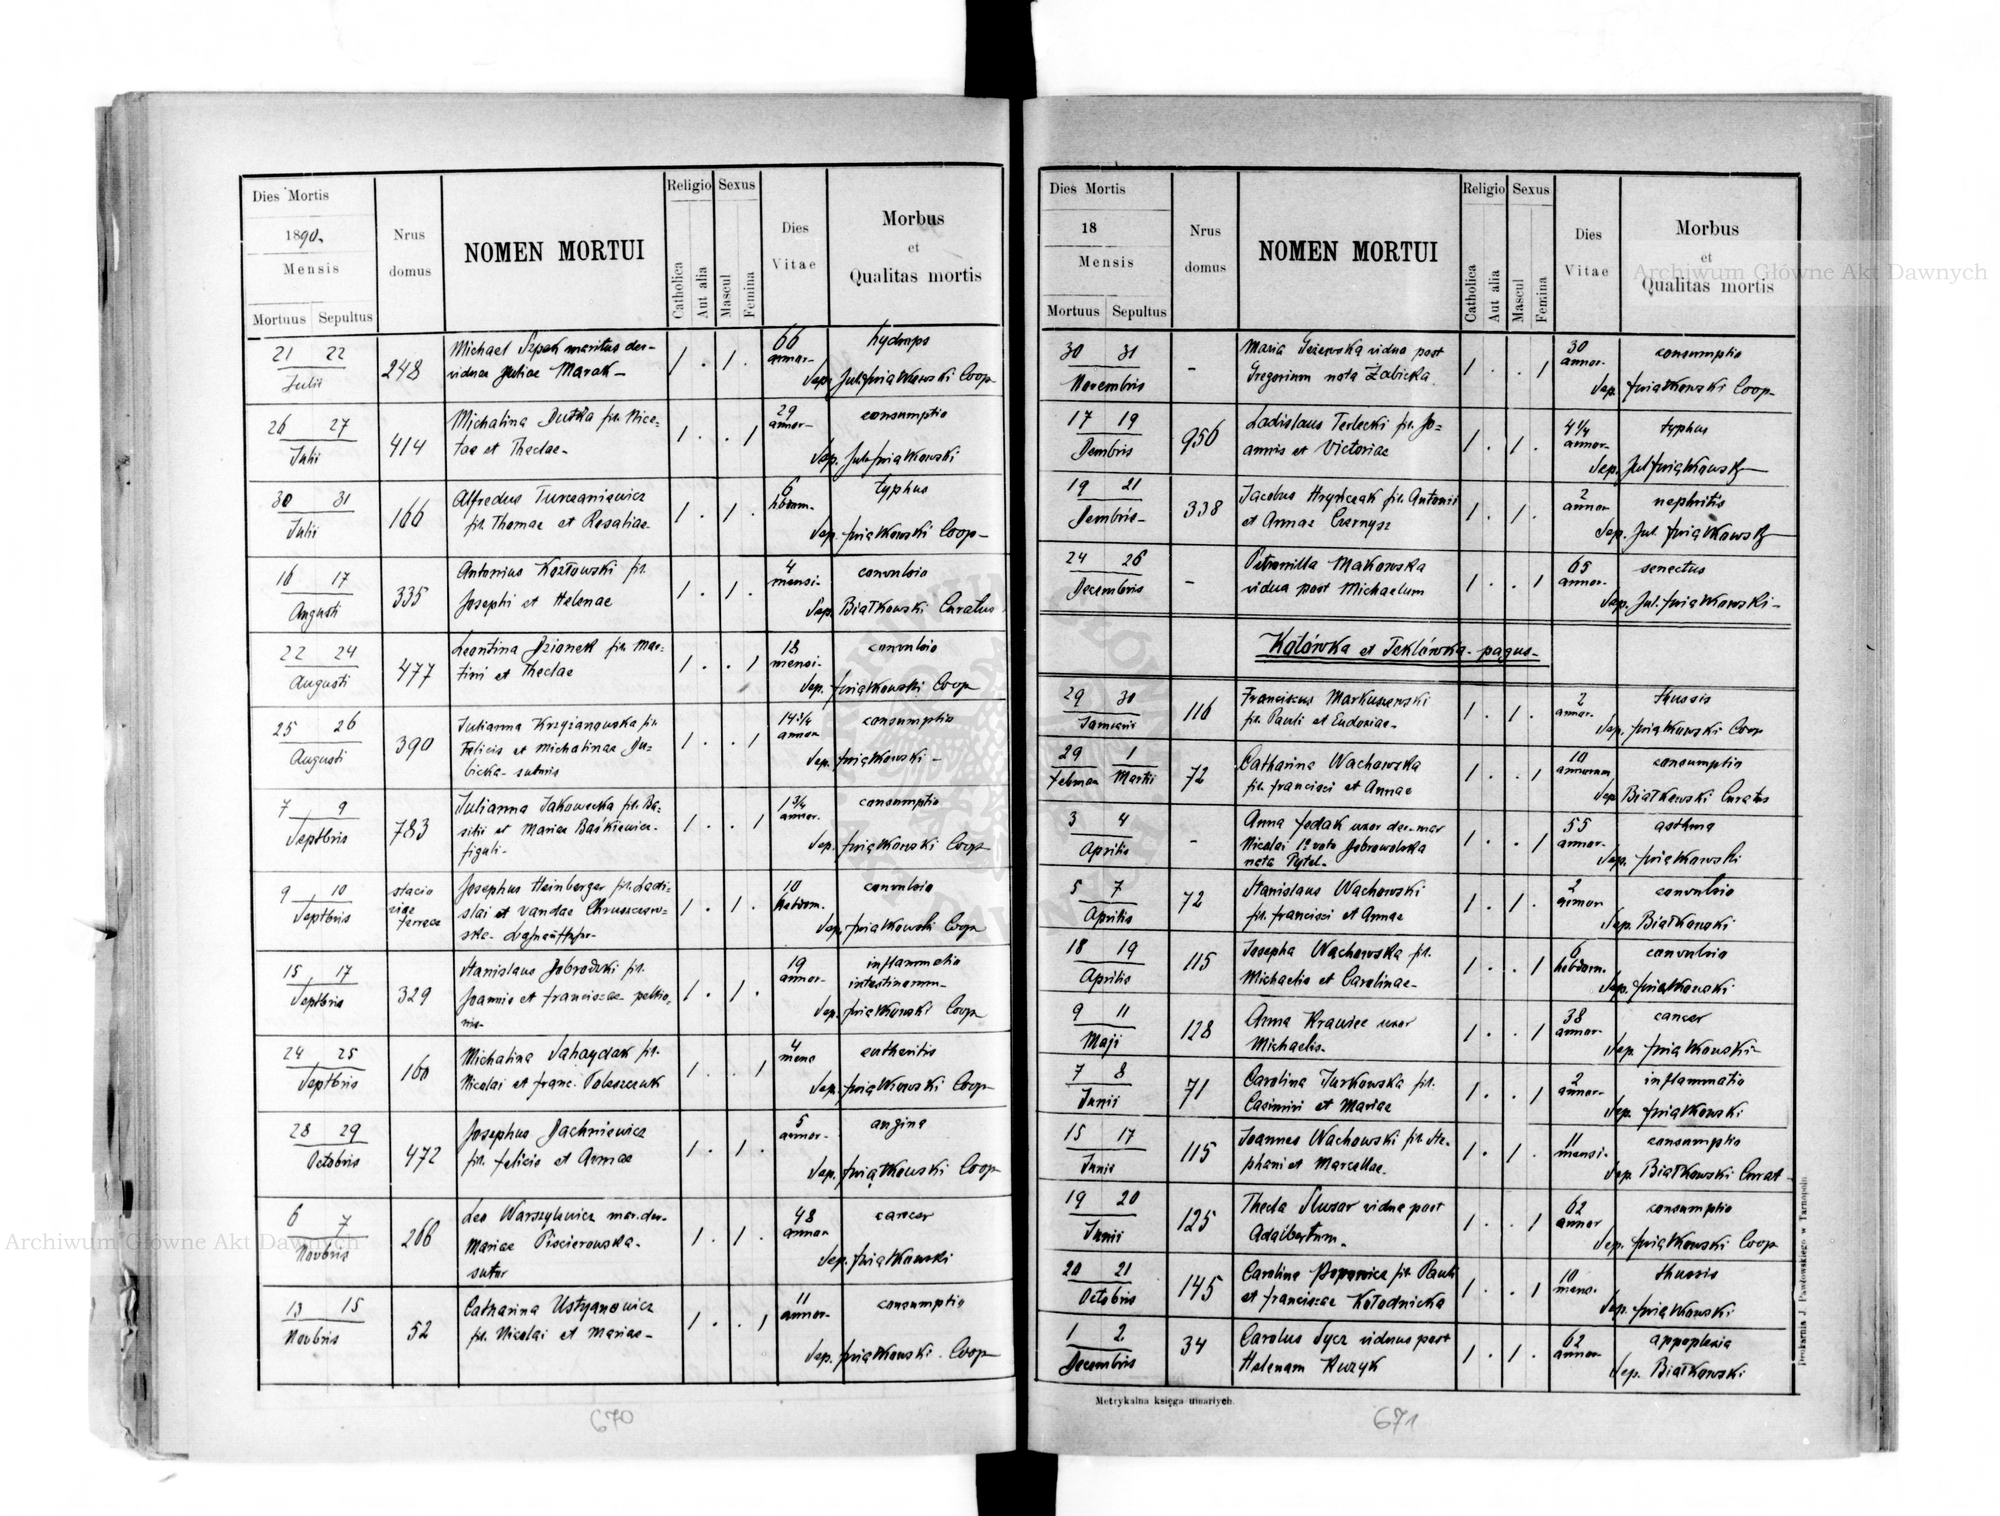 Dies Mortis
1890.
Mensis
Mortuus Sepultus
Nrus
domus
NOMEN MORTUI
Religio
Catholica
Aut alia
Sexus
Mascul
Femina
Dies
Vitae
Morbus
et
Qualitas mortis
21 22
Julii
248
Michael Szpak maritus der-
viduae Juliae Marak-
1 . 1 .
66
annor-
hydrops
Sep. Jul. Świątkowski Coop-
26 27
Julii
414
Michalina Dutka fil. Nice-
tae et Theclae-
1 . . 1
29
annor-
consumptio
Sep. Jul. Świątkowski
30 31
Julii
166
Alfredus Turczaniewicz
fil. Thomae et Rosaliae
1 . 1 .
6
hbdom.
typhus
Sep. Świątkowski Coop-
16 17
Augusti
335
Antonius Kozłowski fil.
Josephi et Helenae
1 . 1 .
4
mensi-
convulsio
Sep. Białkowski Curatus
22 24
Augusti
477
Leontina Dzionek fil. Mar-
tini et Theclae
1 . . 1
18
mensi-
convulsio
Sep. Świątkowski Coop
25 26
Augusti
390
Julianna Krzyżanowska fil.
Felicis et Michalinae Du-
bicka- sutoris
1 . . 1
14 3/4
annor
consumptio
Sep. Świątkowski -
7 9
Septbris
783
Julianna Jakowecka fil. Ba-
silii et Mariae Baśkiewicz-
figuli-
1 . . 1
1 3/4
annor.
consumptio
Sep. Świątkowski Coop
9 10
Septbris
stacio
viae
ferreae
Josephus Heinberger fil. Ladi-
slai et Vandae Chruszczew-
ska-
1 . 1 .
10
hebdom.
convulsio
Sep. Świątkowski Coop
15 17
Septbris
329
Stanislaus Dobrodzki fil.
Joannis et Franciscae pellio-
nis-
1 . 1 .
19
annor-
inflammatio
intestinorum-
Sep. Świątkowski Coop
24 25
Septbris
160
Michalina Sahaydak fil.
Nicolai et Franc. Poleszczuk
1 . . 1
4
mens
Sep. Świątkowski Coop
28 29
Octobris
472
Josephus Dachniewicz
fil. Felicis et Annae
1 . 1 .
5
annor-
angina
Sep. Świątkowski Coop
6 7
Novbris
266
Leo Warszylewicz mar. der-
Mariae Piscierowska-
sutor
1 . 1 .
48
annor
cancer
Sep. Świątkowski
13 15
Novbris
52
Catharina Ustyanowicz
fil. Nicolai et Mariae-
1 . . 1
11
annor-
consumptio
Sep. Świątkowski. Coop
670
Dies Mortis
18
Mensis
Mortuus Sepultus
Nrus
domus
NOMEN MORTUI
Religio
Catholica
Aut alia
Sexus
Mascul
Femina
Dies
Vitae
Morbus
et
Qualitas mortis
30 31
Novembris
-
Maria vidua post
Gregorium nata Zabicka
1 . . 1
30
annor-
consumptio
Sep. Świątkowski Coop-
17 19
Dembris
956
Ladislaus Terlecki fil. Jo-
annis et Victoriae
1 . 1 .
4 1/4
annor-
typhus
Sep. Jul Świątkowski
19 21
Dembris-
338
Jacobus Hryńczak fil. Antonii
et Annae Czernysz
1 . 1 .
2
annor
nephritis
Sep. Jul. Świątkowski
24 26
Decembris
-
Petronilla Makowska
vidua post Michaelum
1 . . 1
65
annor-
senectus
Sep. Jul. Świątkowski-
Kątówka et Teklówka- pagus-
29 30
Januarii
116
Franciscus Markuszewski
fil. Pauli et Eudoxiae-
1 . 1 .
2
annor-
thussis
Sep. Świątkowski Coop
29 1
Februar Martii
72
Catharina Wachowska
fil. Francisci et Annae
1 . . 1
10
annorum
consumptio
Sep. Białkowski Curatus
3 4
Aprilis
-
Anna Fedak uxor der. mar
Nicolai 1º voto Dobrowolska
nata Pytel-
1 . . 1
55
annor-
asthma
Sep. Świątkowski
5 7
Aprilis
72
Stanislaus Wachowski
fil. Francisci et Annae
1 . 1 .
2
annor
convulsio
Sep. Białkowski
18 19
Aprilis
115
Josepha Wachowska fil.
Michaelis et Carolinae-
1 . . 1
6
hebdom.
convulsio
Sep. Świątkowski
9 11
Maji
128
Anna Krawiec uxor
Michaelis-
1 . . 1
38
annor-
cancer
Sep. Świątkowski-
7 8
Junii
71
Carolina Jurkowska fil.
Casimiri et Mariae
1 . . 1
2
annor-
inflammatio
Sep. Świątkowski
15 17
Junii
115
Joannes Wachowski fil. Ste-
phani et Marcellae-
1 . 1 .
11
mensi-
consumptio
Sep. Białkowski Curat-
19 20
Junii
125
Thecla Slusar vidua post
Adalbertum-
1 . . 1
62
annor
consumptio
Sep. Świątkowski Coop
20 21
Octobris
145
Carolina Popowicz fil. Pauli
et Franciscae Kołodnicka
1 . . 1
10
mens.
thussis
Sep. Świątkowski
1 2
Decembris
34
Carolus Sycz viduus post
Helenam Kuzyk
1 . 1 .
62
annor-
appoplexia
Sep. Białkowski
Metrykalna księga umarłych.
Drukarnia J. Pawłowskiego w Tarnopolu
671
Archiwum Główne Akt Dawnych
Archiwum Główne Akt Dawnych